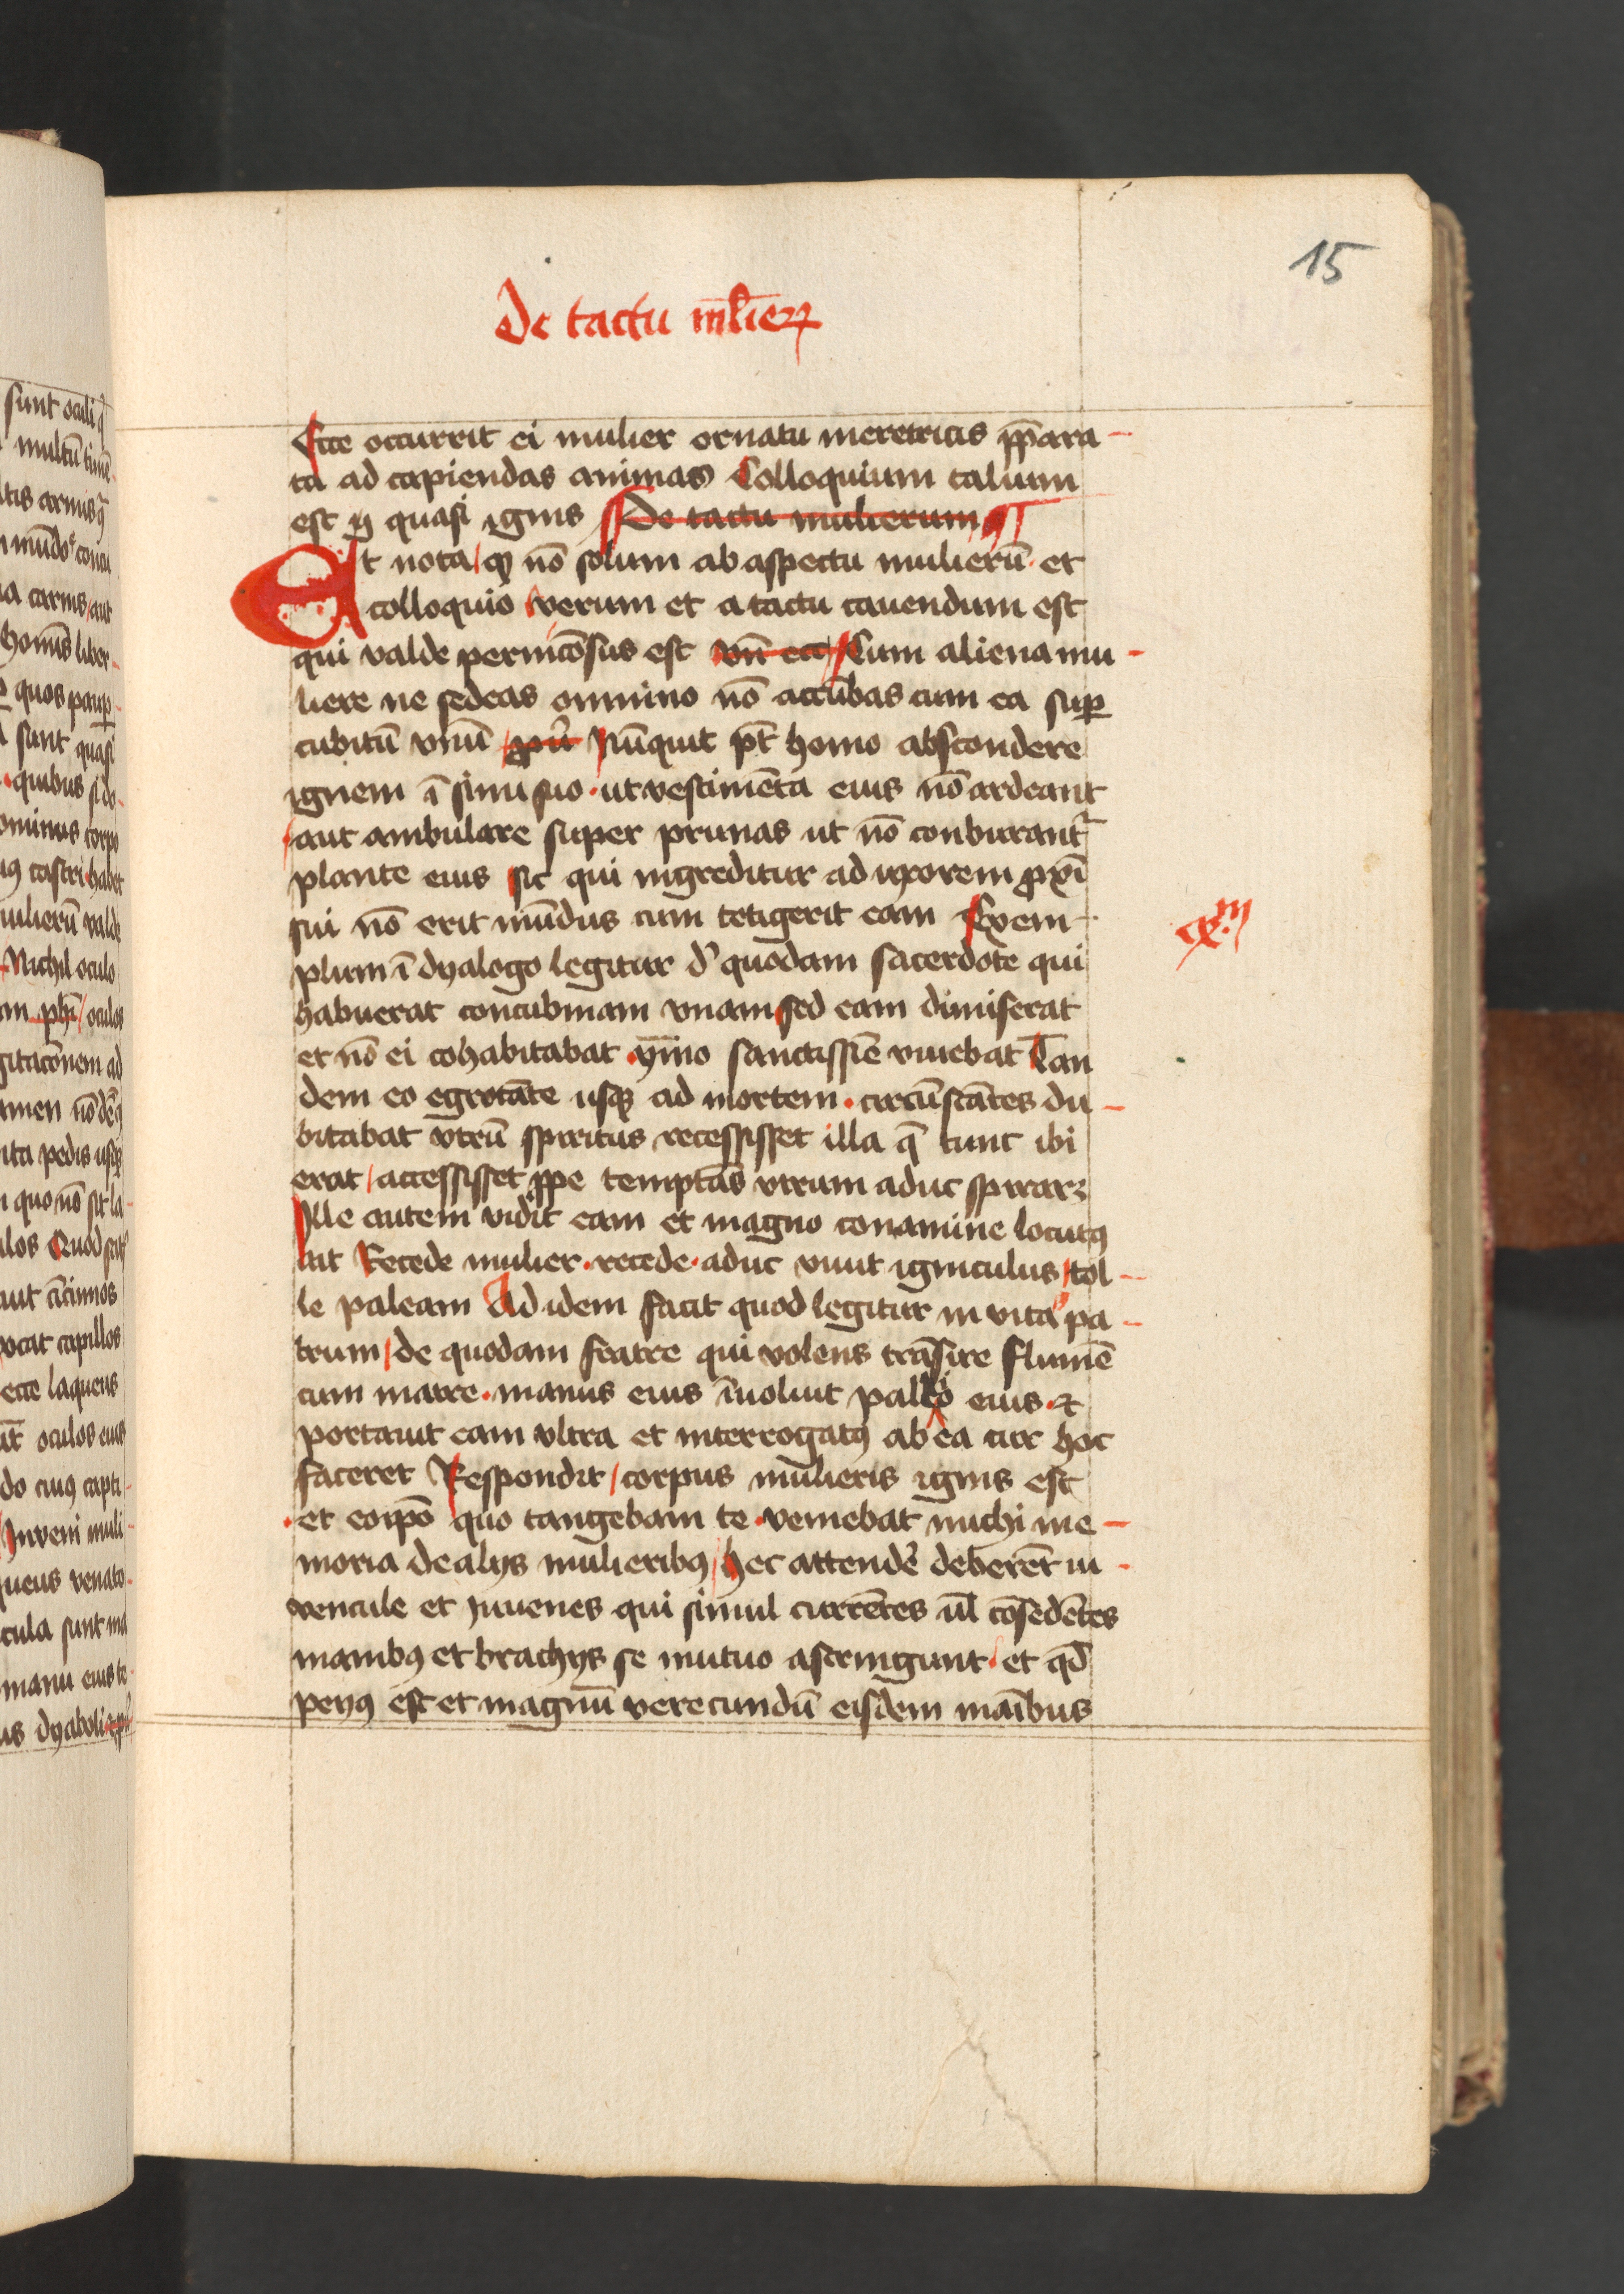 15
De tactu ml̄ieꝝ
Ecce occurrit ei mulier ornatu meretricis p̄para-
ta ad capiendas animas Colloquium talium
est ꝫ quasi ignis De tactu mulierum
Et nota qꝫ nō solum ab aspectu mulierū et
colloquio verum et a tactu cauendum est
qui valde pernicōsus est vn̄ ecc Cum aliena mu-
liere ne sedeas omnino nō accūbas cum ea suꝑ
cubitū vnū ꝓuͬ Nūquit pt̄ homo abscondere
ignem ī sinu suo ut vestimēta eius nō ardeant
aut ambulare super prunas ut nō conburantᷣ
plante eius sic qui ingreditur ad uxorem ꝓxī
sui nō erit mūdus cum tetigerit eam Exem-
plum ī dyalogo legitur d̓ quodam sacerdote qui
habuerat concubinam vnam sed eam dimiserat
et nō ei cohabitabat ymmo sanctissīe viuebat Tan
dem eo egrotāte usqꝫ ad mortem circūstātes du-
bitabat vtrū spiritus recessisset illa q̄ tunc ibi
erat accessisset ꝓpe temptās vtrum aduc spirarꝫ
Ille autem vidit eam et magno conamine locutꝰ
ait Recede mulier recede aduc viuit igniculus tol-
le paleam Ad idem facit quod legitur in vita pa-
trum de quodam fratre qui volens trāsire flumē
cum matre manus eius īuoluit pallio eius et
portauit eam vltra et interrogatꝰ ab ea cur hoc
faceret Respondit corpus mulieris ignis est
et eoip̄o quo tangebam te veniebat michi me-
moria de alijs mulieribꝰ hec attendēͬ deberēt iu-
vencule et Juuenes qui simul currētes ūl cōsedētes
manibꝰ et brachijs se mutuo astringunt et qd̄
peiꝰ est et magnū verecundū eisdem māibus
exᵐ